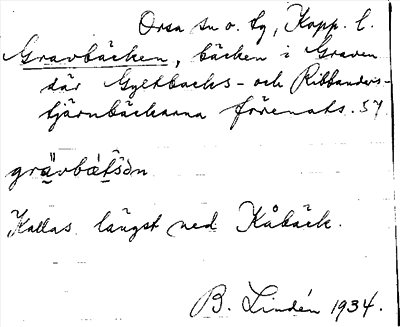 Orsa sn o. tg, Kopp. l.
Gravbäcken, bäcken i Graven
där Gyltbacks- och Ribbanders-
tjärnbäckarna förenats. 57
grävbét̂šǝn
Kallas längst ned Kåbäck.
B. Lindén 1934.